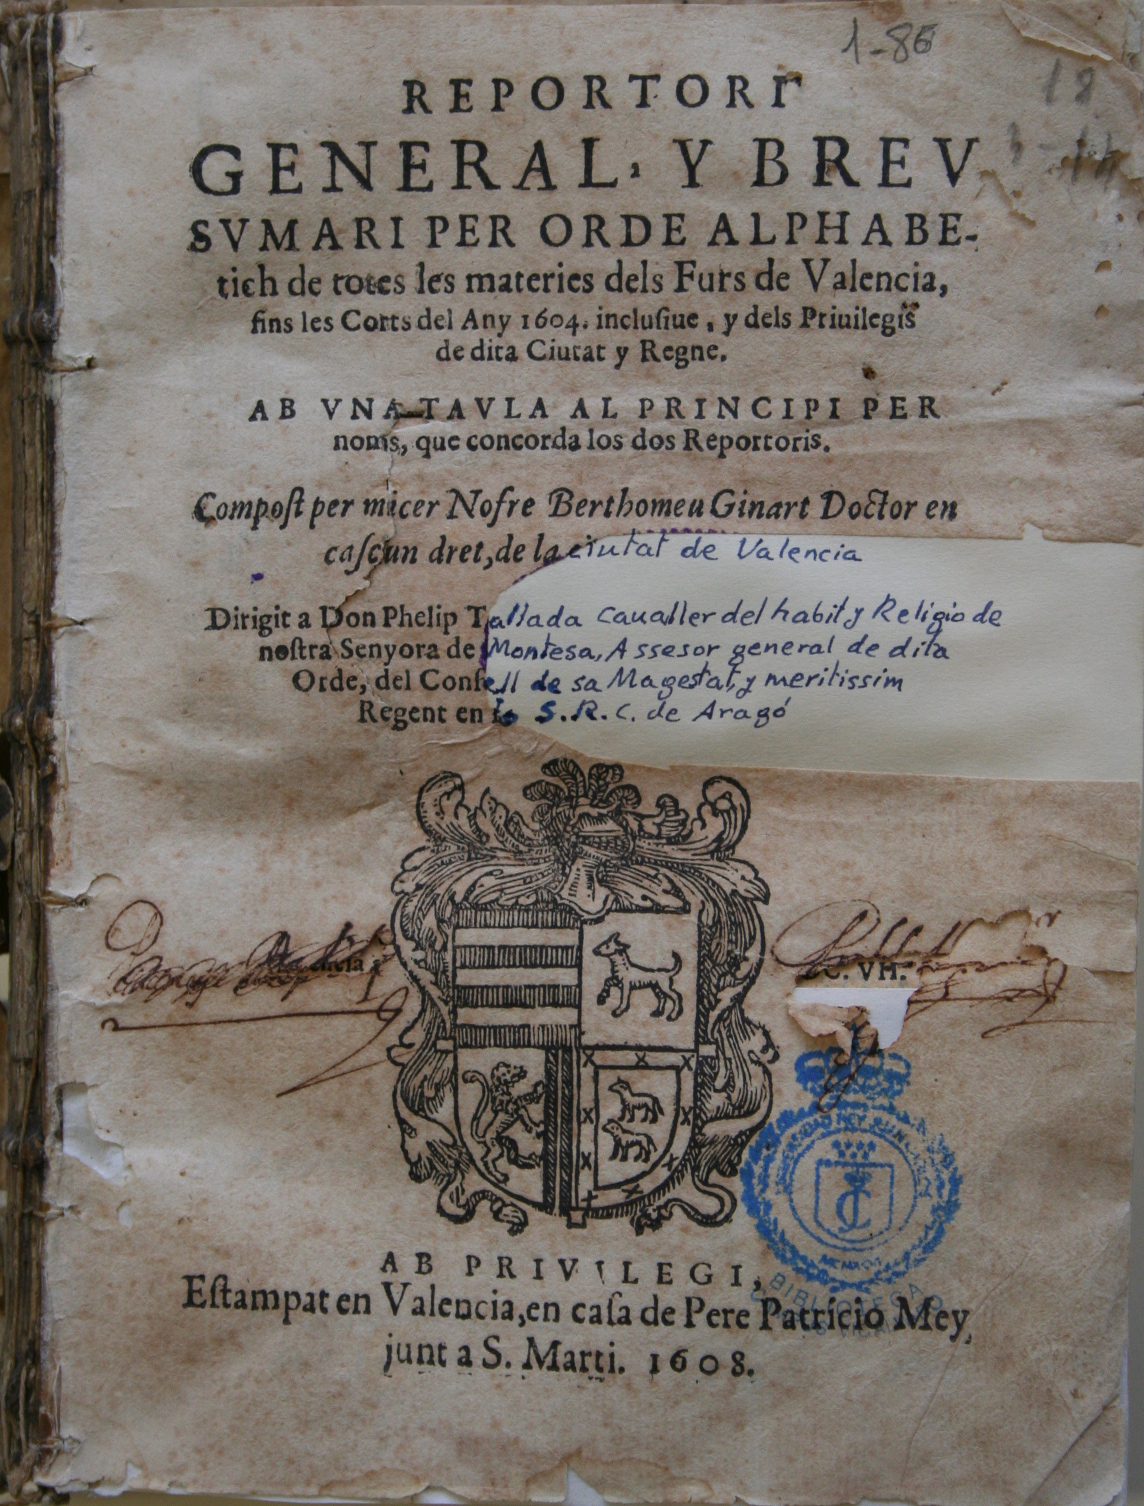 1-86
18
REPORTORI
GENERAL, Y BREV
SVMARI PER ORDE ALPHABE-
tich de totes les materies dels Furs de Valencia,
fins les Corts del Any 1604. inclusiue, y dels Priuilegis
de dita Ciutat y Regne.
AB VNA TAVLA AL PRINCIPI PER
noms, que concorda los dos Reportoris.
Compost per micer Nofre Berthomeu Ginart Doctor en
cascun dret, de la ciutat de Valencia
Dirigit a Don Phelip Tallada Caualler del habit y Religio de
nostra Senyora de Montesa, Assesor general de dita
Orde, del Consell de sa Magestat, y meritissim
Regent en lo S.R.C. de Aragó
C. VH.
AB PRIVILEGI,
Estampat en Valencia, en casa de Pere Patricio Mey,
junt a S. Marti. 1608.
BIBLIOTECA